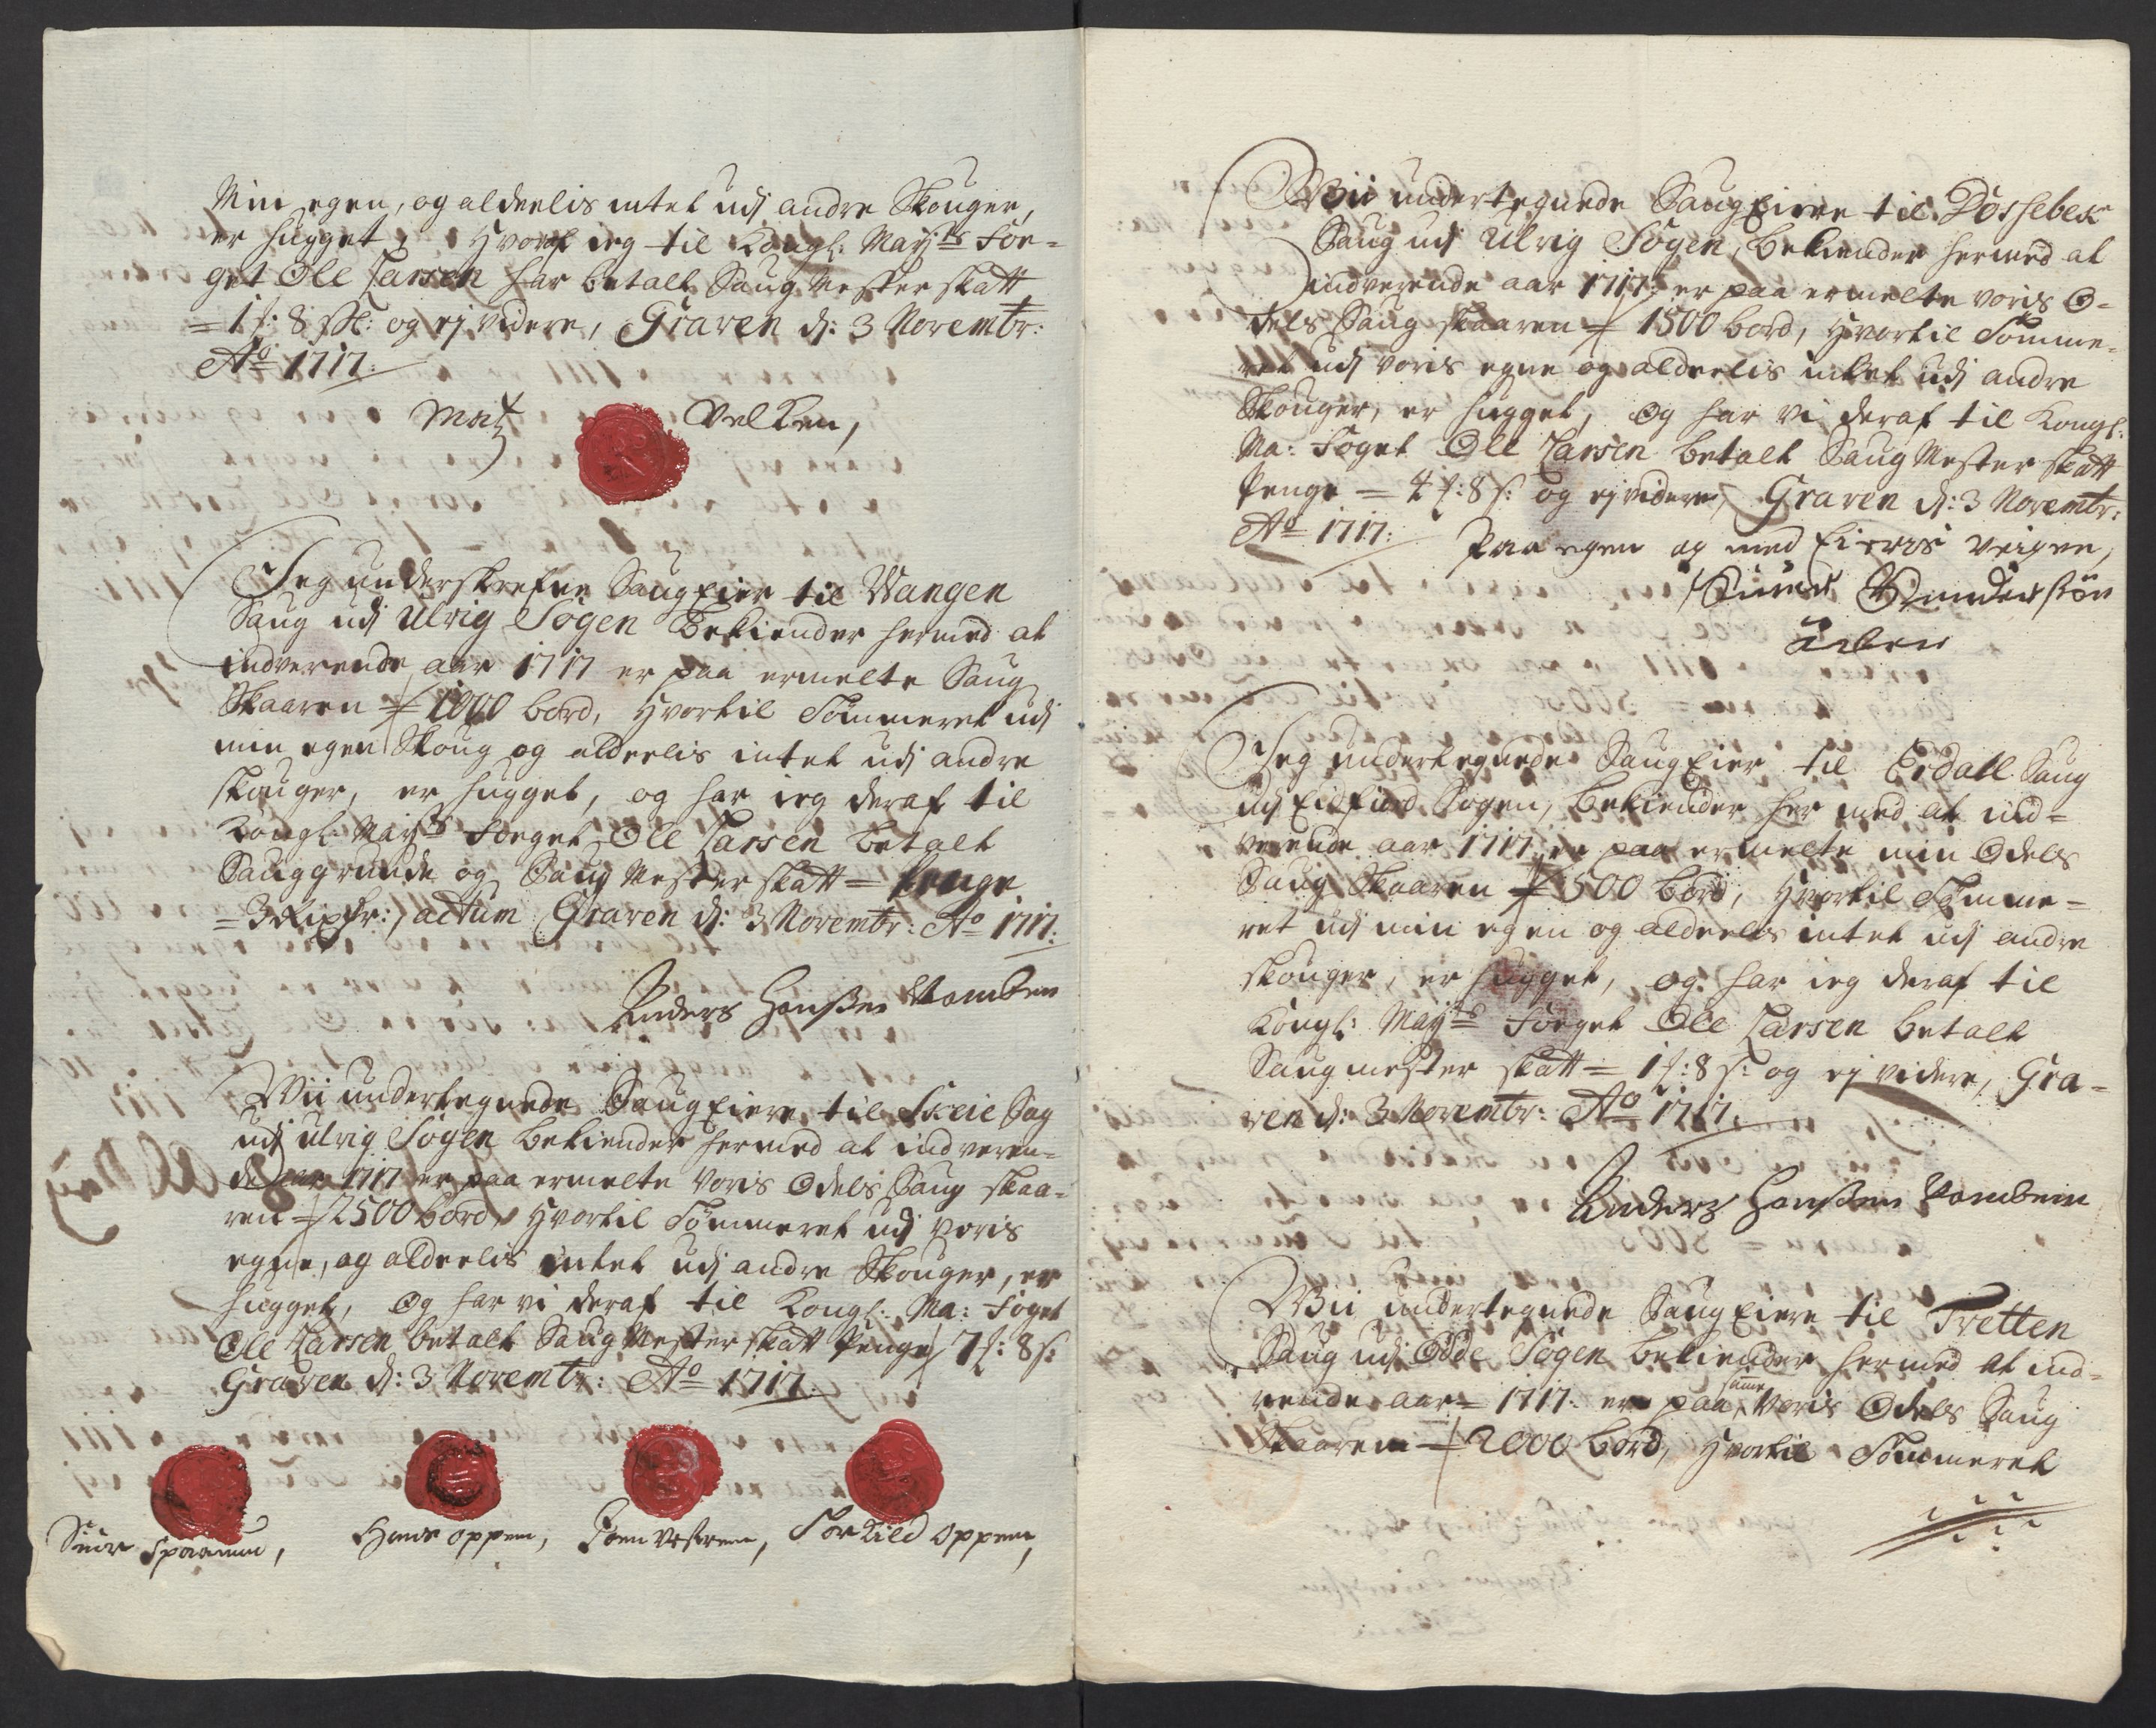 Min egen, og aldeelis intet udj andre Skouger,
er hugget, hvoraf ieg til Kongl: Mayts Foe-
get Ole Larsen har betalt Saug Mester skatt
= 1 f: 8 sk: og ej videre, Graven d: 3 Novembr:
Ao 1717:
Matz Velken,
Jeg underskrefne SaugEier til Wangen
Saug udj Ulvig Sogen Bekiender hermed at
indverende aar 1717 er paa ermelte Saug
Skaaren = 1000 bord, hvortil Tømmeret udj
min egen Skoug og aldeelis intet udj andre
skouger, er hugget, og har ieg deraf til
Kongl: Mayts Foeget Ole Larsen betalt
Sauggrunde og Saug Mester skatt = penge
= 3 Rixdr:, actum Graven d: 3 Novembr: Ao 1717:
Anders Hanssen
Wii undertegnede SaugEiere til Skeie Sag
udj Ulvig Sogen bekiender hermed at indveren-
de aar 1717 er paa ermelte voris Odels Saug skaa-
ren = 2500 bord, hvortil Tømmeret udj voris
egne, og aldeelis intet udj andre Skouger, er
hugget, Og har vi deraf til Kongl: Ma: Foget
Ole Larsen betalt Saug Mester skatt Penge 7 f: 8 s:
Graven d: 3 Novembr: Ao 1717:
Siur Spaanem, Hans oppem, Joen Vestrem, Torkild oppem,
Wii undertegnede SaugEiere til Dossebek
Saug udj Ulvig Sogen, bekiender hermed at
indverende aar 1717 er paa ermelte voris O-
dels Saug skaaren = 1500 bord, hvortil Tømme-
ret udj voris egne og aldeelis intet udj andre
Skouger, er hugget, Og har vi deraf til Kongl:
Ma: Foget Ole Larsen betalt Saug Mester skatt
Penge = 4 f: 8 s: og ej videre, Graven d: 3 Novembr:
Ao 1717: Paa egen og med Eieris veigne,
Jeg undertegnede SaugEier til Eidall Saug
udj Eidfiord Sogen, bekiender her med at ind-
verende aar 1717 er paa ermelte min Odels
Saug Skaaren = 500 bord, hvortil Tømme-
ret udj min egen og aldeelis intet udj andre
skouger, er hugget, og har ieg deraf til
Kongl: Mayts Foeget Ole Larsen betalt
Saugmester skatt = 1 f: 8 s: og ej videre, Gra-
ven d: 3 Novembr: Ao 1717.
Anders Hanssen
Wii undertegnede SaugEiere til Tretten
Saug udj Odde Sogen bekiender hermed at ind-
rende aar = 1717: er paa samme voris Odels Saug
Skaaren = 2000 bord, hvortil Tømmeret